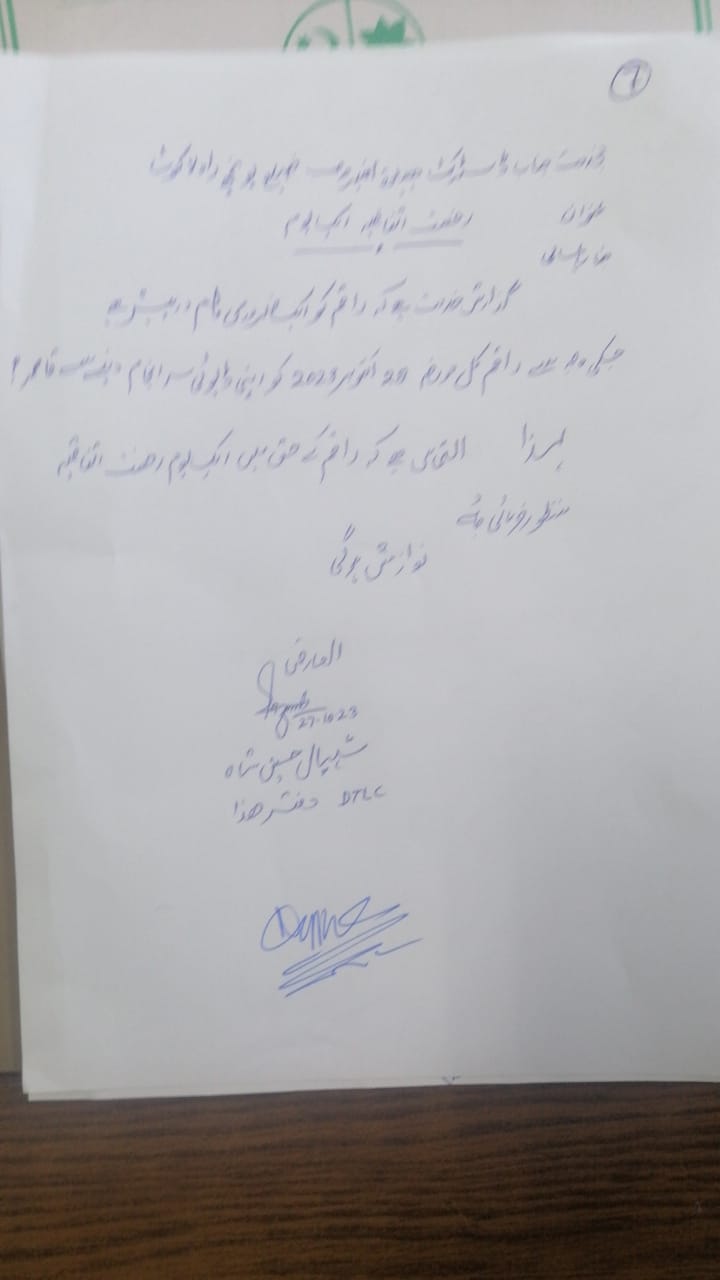 7
بخدمت جناب ڈسٹرکٹ ہیلتھ آفیسر صاحب ضلع پونچھ راولاکوٹ
عنوان رخصت اتفاقیہ ایک یوم
جناب عالی
گزارش خدمت ہے کہ راقم کو ایک ضروری کام درپیش ہے
جسکی وجہ سے راقم کل مورخہ 28 اکتوبر 2023 کو اپنی ڈیوٹی سرانجام دینے سے قاصر
لہذا التماس ہے کہ راقم کے حق میں ایک یوم رخصت اتفاقیہ
منظور فرمائی جائے
نوازش ہوگی
العارض
27-10-23
حسین شاہ
DTLC دفتر ھذا